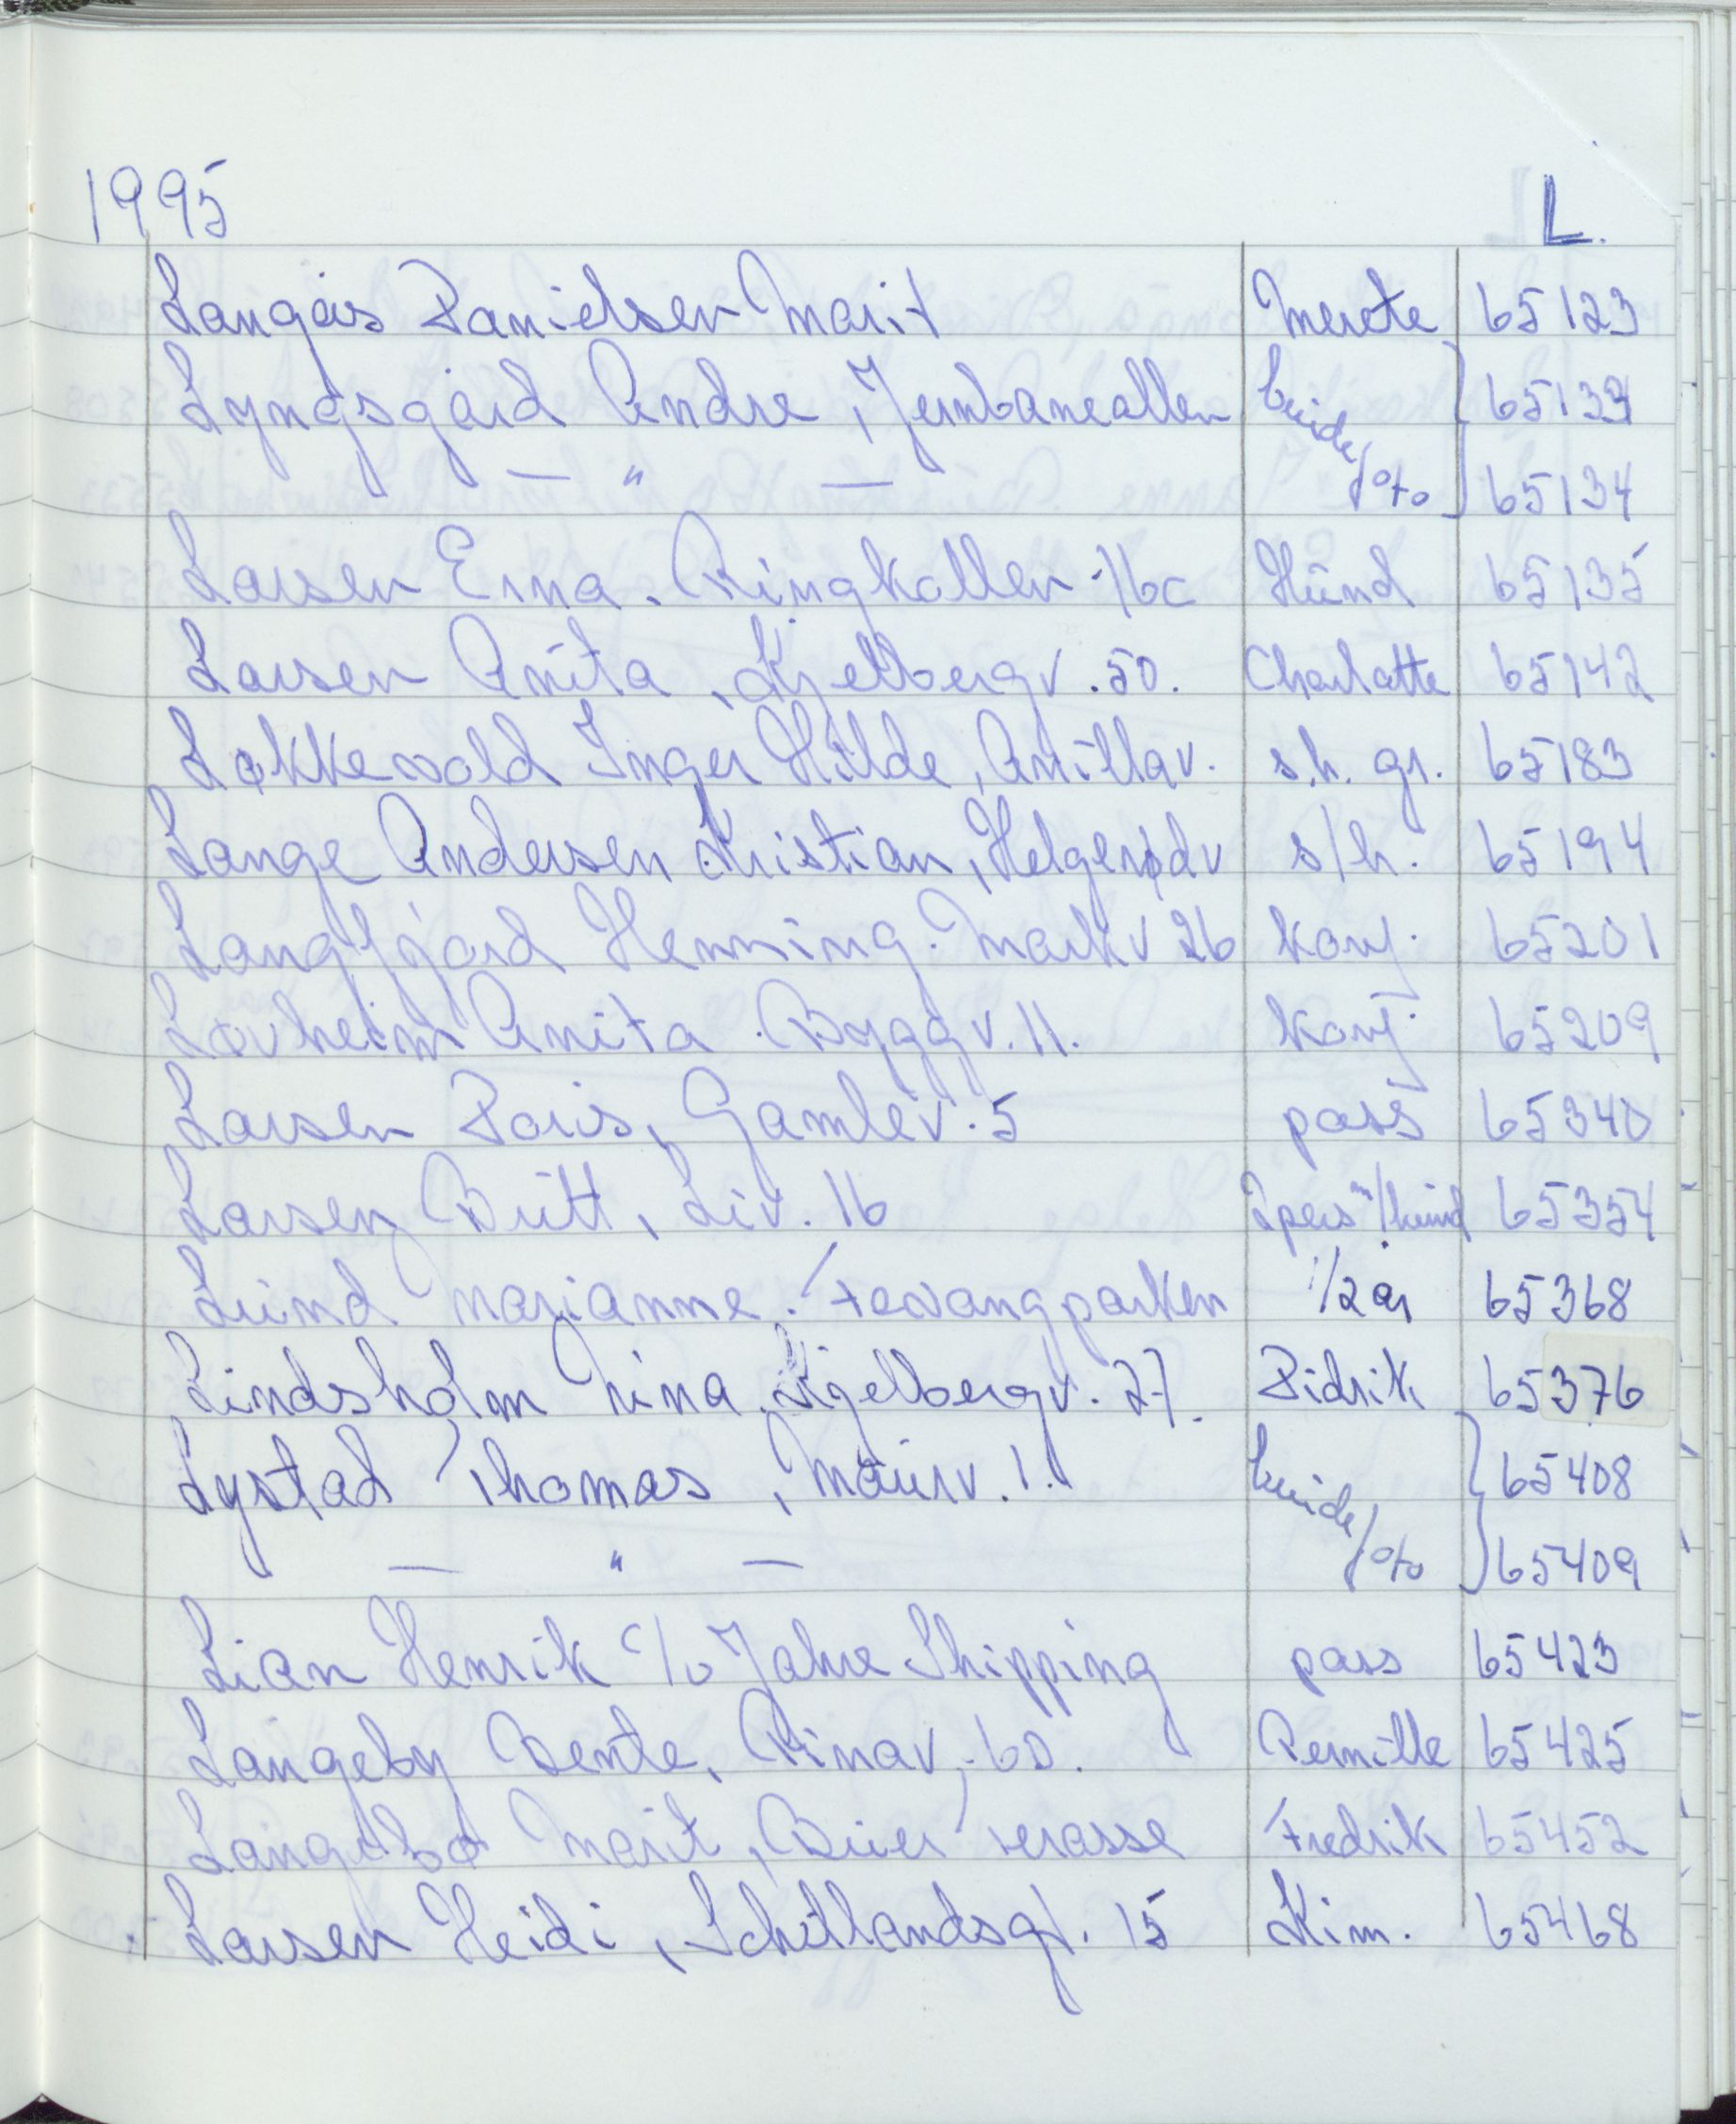 1995 L.
Langås Danielsen Marit Merete 65123
Lyngsgård Andre, Jernbanealleen 65133
— " — 65134
Larsen Erna. Ringkollen 16c Hund 65135
Larsen Anita, Kjelbergv. 50. Charlotte 65142
Løkkevold Inger Hilde, Amillav. s.h. gr. 65183
Lange Andersen Kristian, Helgerødv s/h. 65194
Langfjord Henning. Markv 26 konf. 65201
Løvheim Anita. Byggv. 11. konf. 65209
Larsen Doris, Gamlev. 5 pass 65340
Larsen Britt, Liv. 16 2pers m/hund 65354
Lund Marianne. Fevangparken 1/2 år 65368
Lindsholm Nina, Kjelbergv. 27. Didrik 65376
Lystad Thomas, Maurv. 1. 65408
— " — 65409
Lian Henrik c/o Jahre Shipping pass 65423
Langeby Bente, Rinav. 60. Pernille 65425
Langebo Marit, Buer terasse Fredrik 65452
Larsen Heidi, Schillandsgt. 15 Kim. 65468